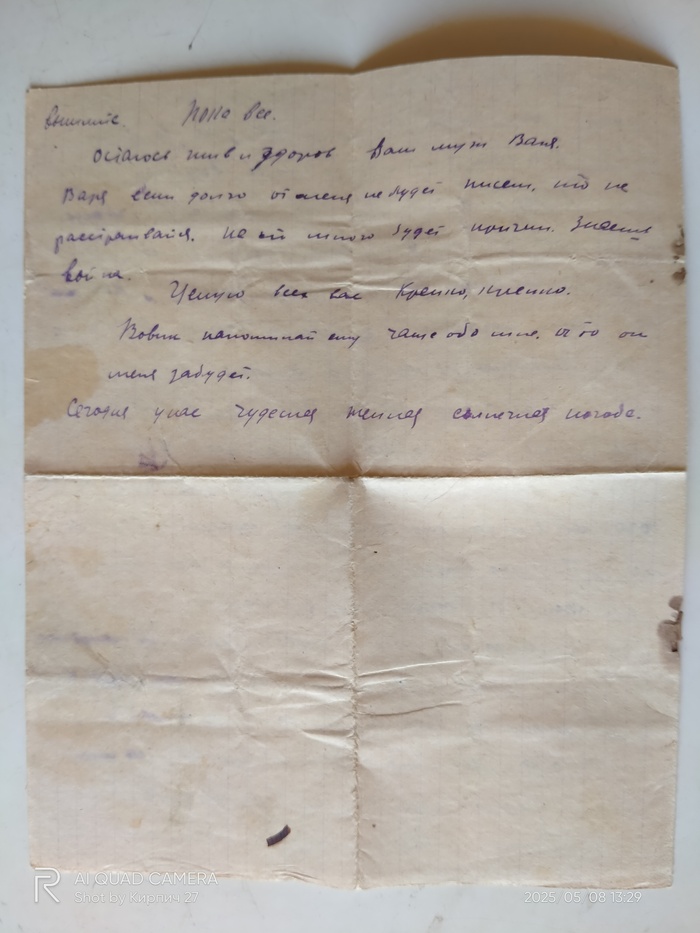 вышлите. Пока все.
Остаюсь жив и здоров Ваш муж Ваня.
Варя если долго от меня не будет писем, то не
растраивайся. На то много будет причин. Знаешь
война.
Целую всех вас Крепко, крепко.
Вовик напоминай ему чаще обо мне. а то он
меня забудет.
Сегодня у нас чудесная теплая солнечная погода.
AI QUAD CAMERA
Shot by Кирпич 27
2025/05/08 13:29